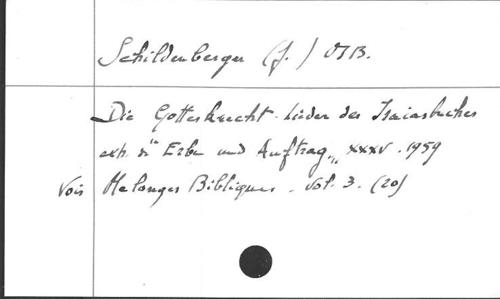 Schildenberger (J.) OSB.
Die Gottesknecht-Lieder des Isaiasbuches
ext. d' "Erbe und Auftrag", XXXV. 1959
Vois Melanges Bibliques. vol. 3. (20)